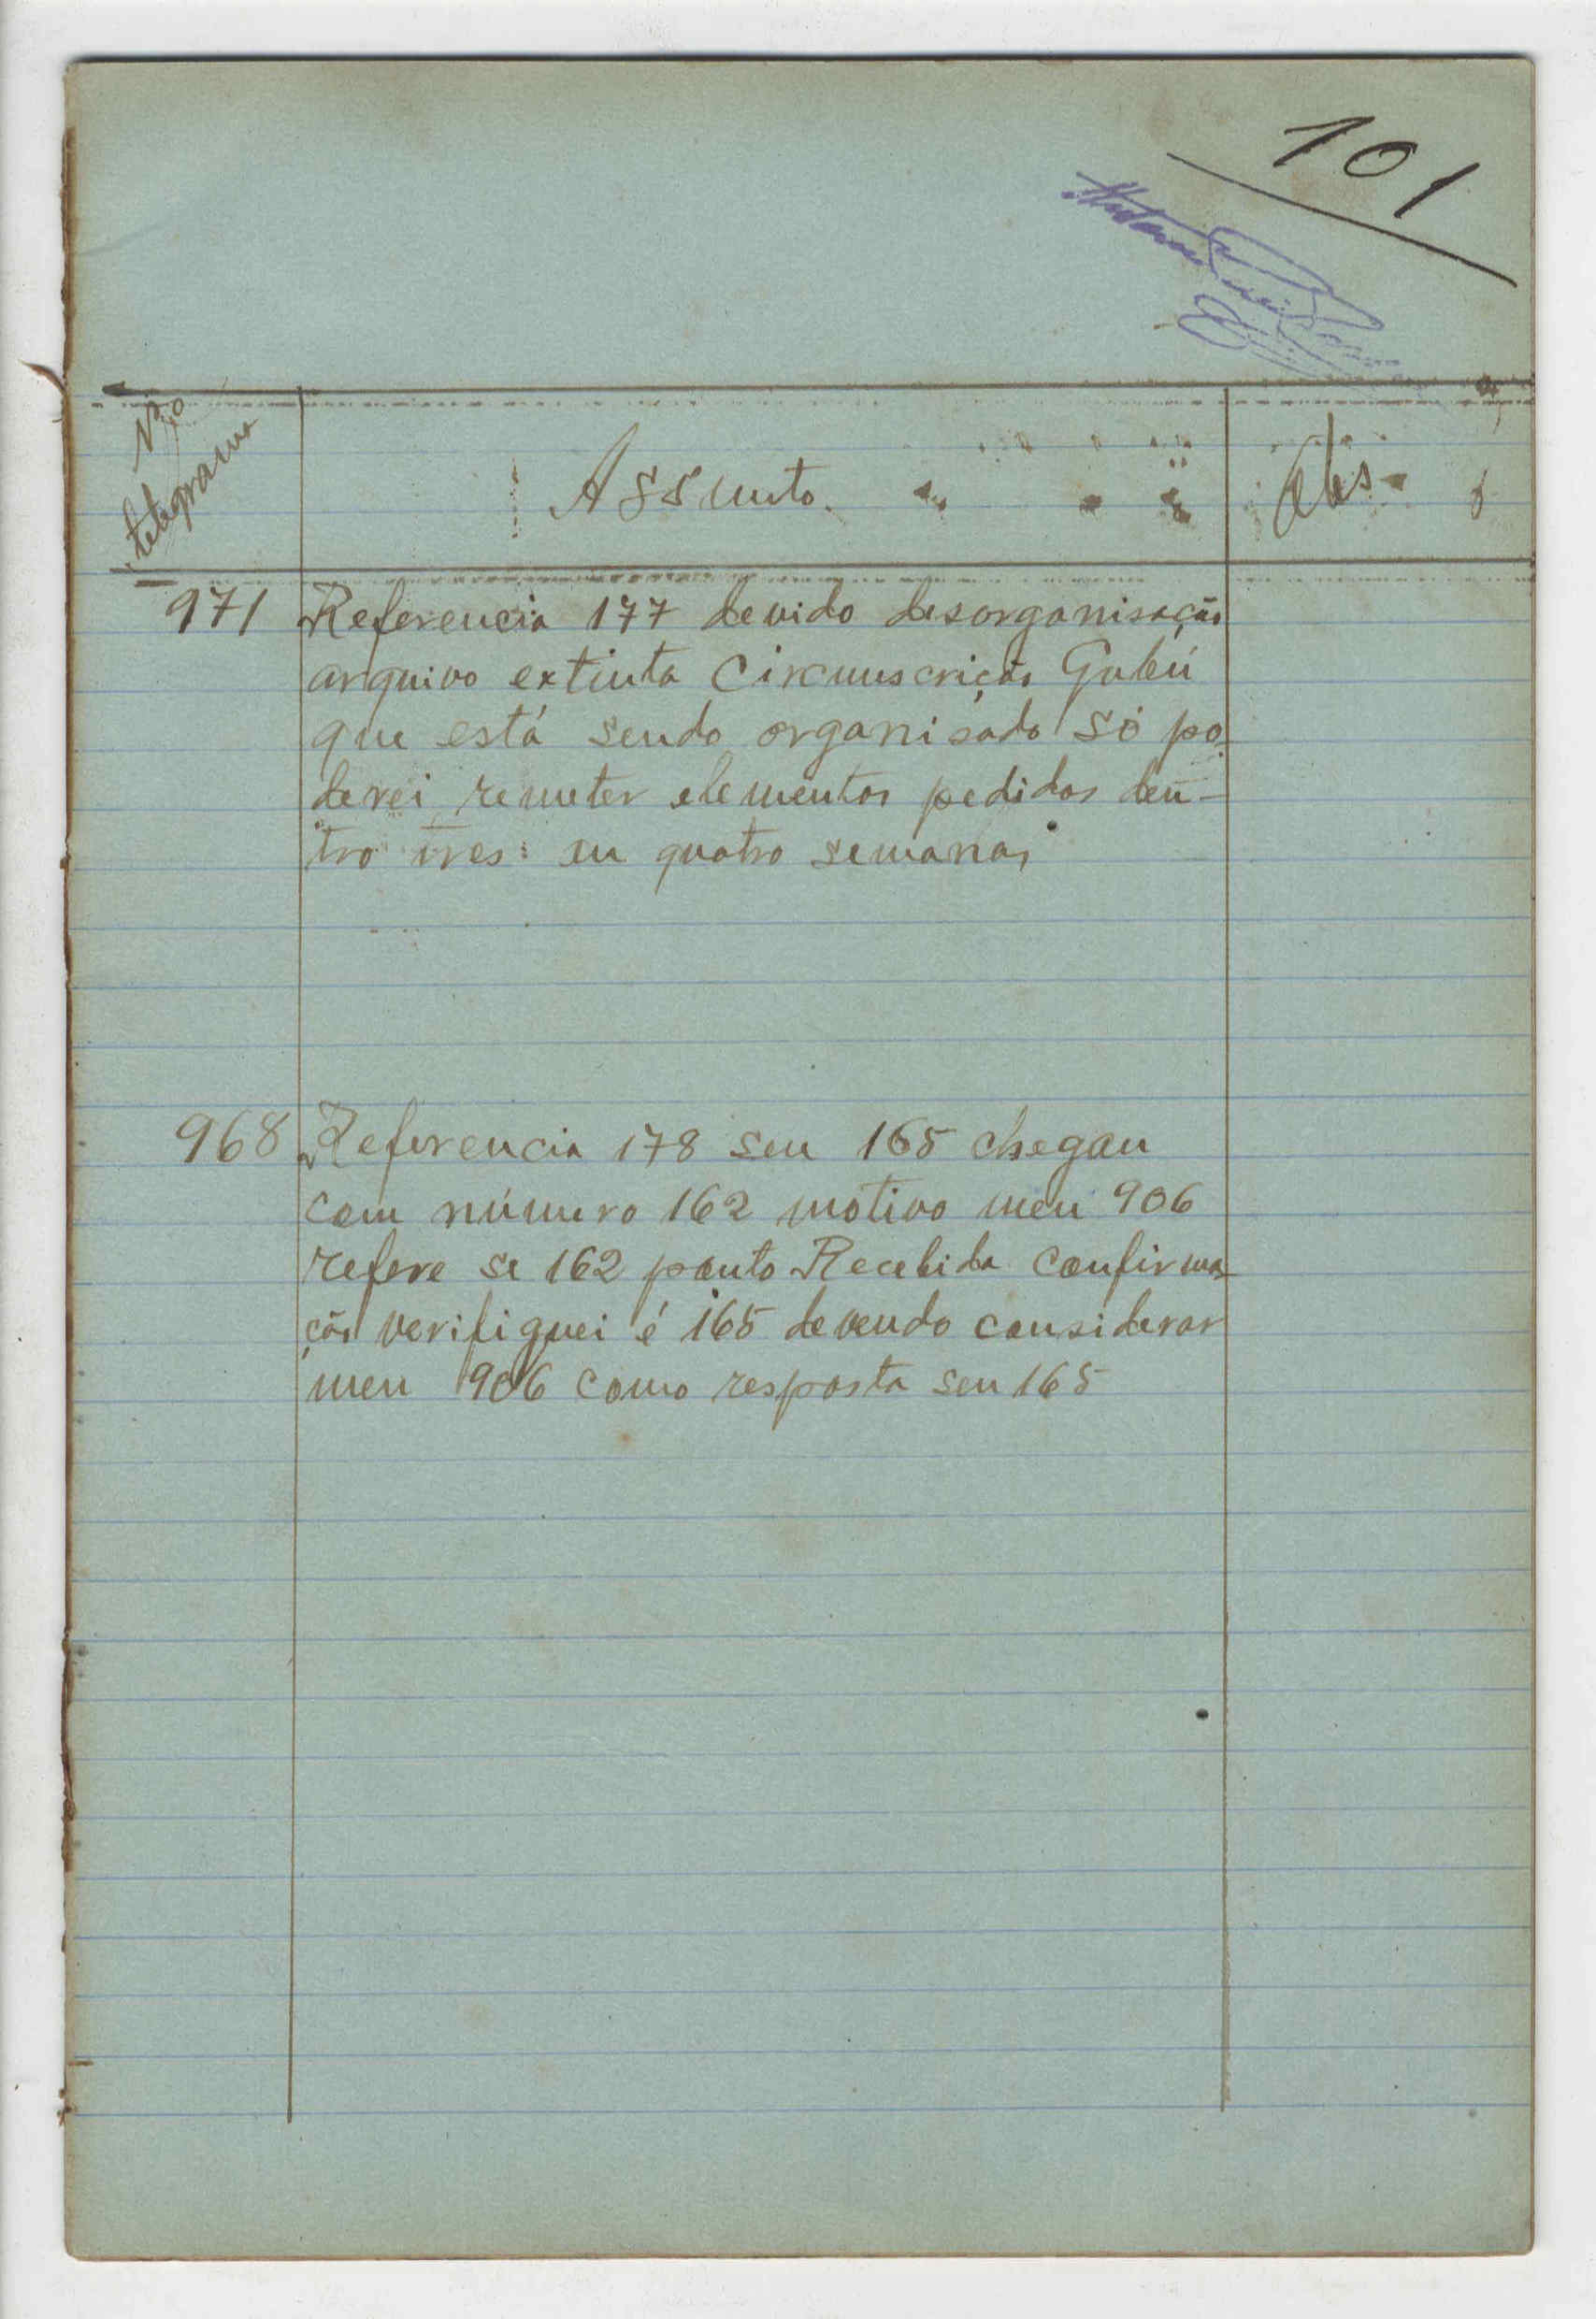 101
Nº
telegrama
Assunto.
Obs.
971 Referencia 177 devido desorganisação
arquivo extinta Circunscrição Gabú
que está sendo organisado só po-
derei remeter elementos pedidos den-
tro tres ou quatro semanas
968 Referencia 178 seu 165 chegou
com número 162 motivo meu 906
refere se 162 ponto Recebida confirma-
ção verifiquei é 165 devendo considerar
meu 906 como resposta seu 165